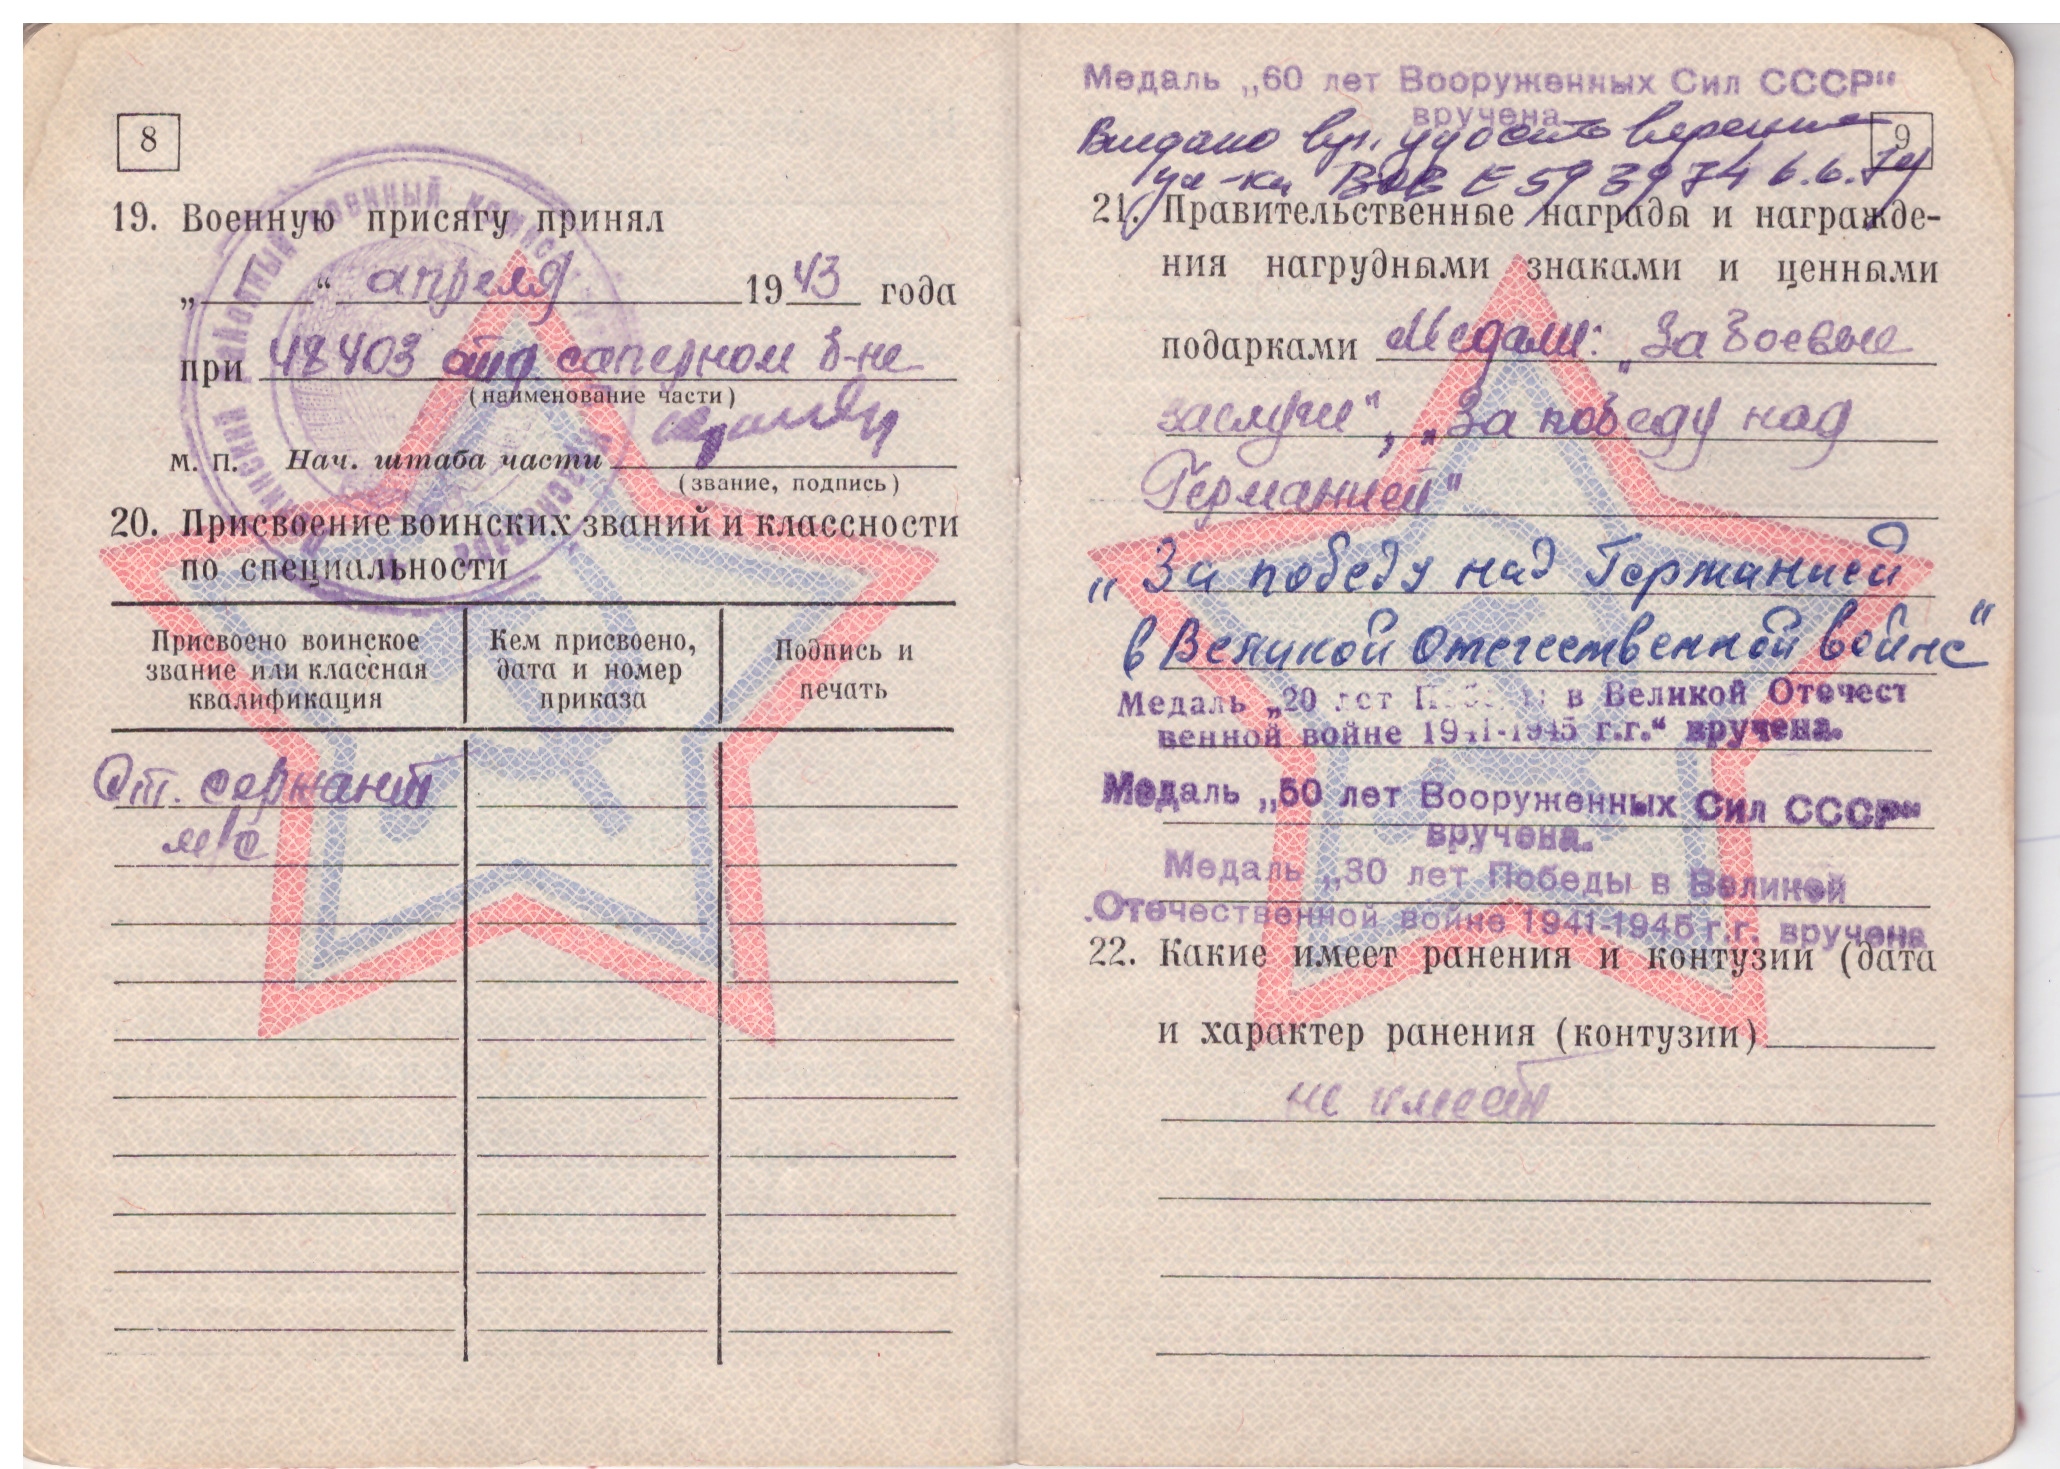 8
19. Военную присягу принял
„ “ апреля 1943 года
при 48403 отд саперном б-не
(наименование части)
м. п. Нач. штаба части
(звание, подпись)
20. Присвоение воинских званий и классности
по специальности
Присвоено воинское
звание или классная
квалификация
Кем присвоено,
дата и номер
приказа
Подпись и
печать
Ст. сержант
м/с
Медаль „60 лет Вооруженных Сил СССР“
вручена
9
Выдано
уч-ка ВОВ Е 593974 6.6.79
21. Правительственные награды и награжде-
ния нагрудными знаками и ценными
подарками Медали: „За боевые
заслуги“, „За победу над
Германией“
„За победу над Германией
в Великой Отечественной войне“
Медаль „20 лет Победы в Великой Отечест
венной войне 1941-1945 г.г.“ вручена.
Медаль „50 лет Вооруженных Сил СССР“
вручена.
Медаль „30 лет Победы в Великой
Отечественной войне 1941-1945 г.г. вручена
22. Какие имеет ранения и контузии (дата
и характер ранения (контузии)
не имеет